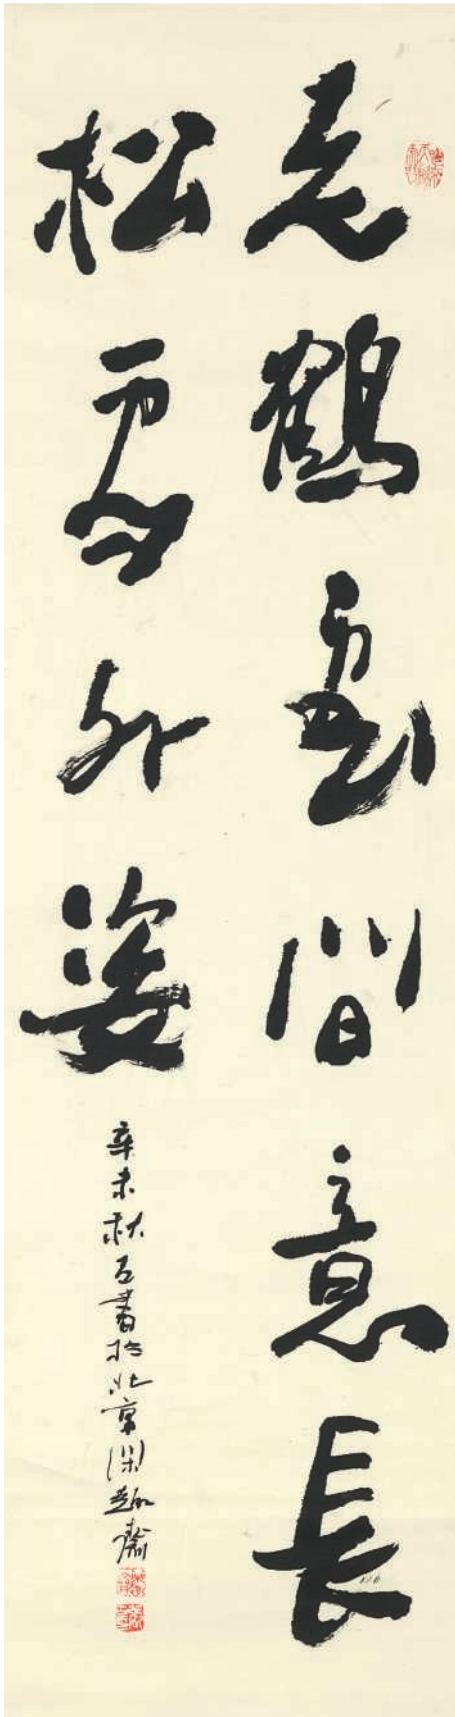 老鶴雲間意長
松雪外姿
辛未秋石書於北京閑趣齋